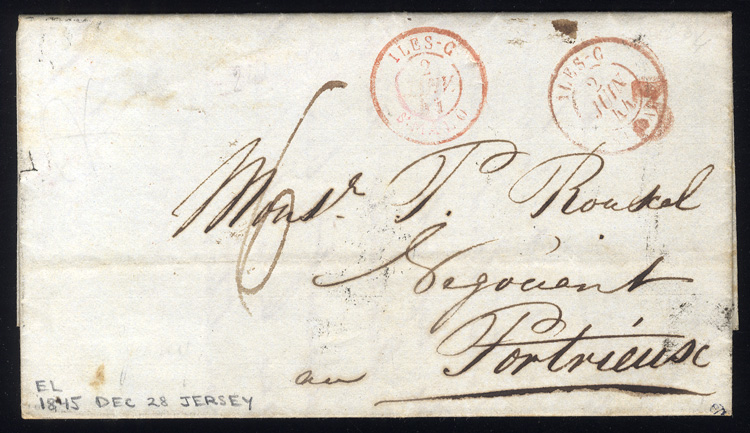 ILES-C
2
ILES-C
2
JUIN
44
6
Monsr. P. Rouxel
Negociant
au Portrieux
EL
1845 DEC 28 JERSEY